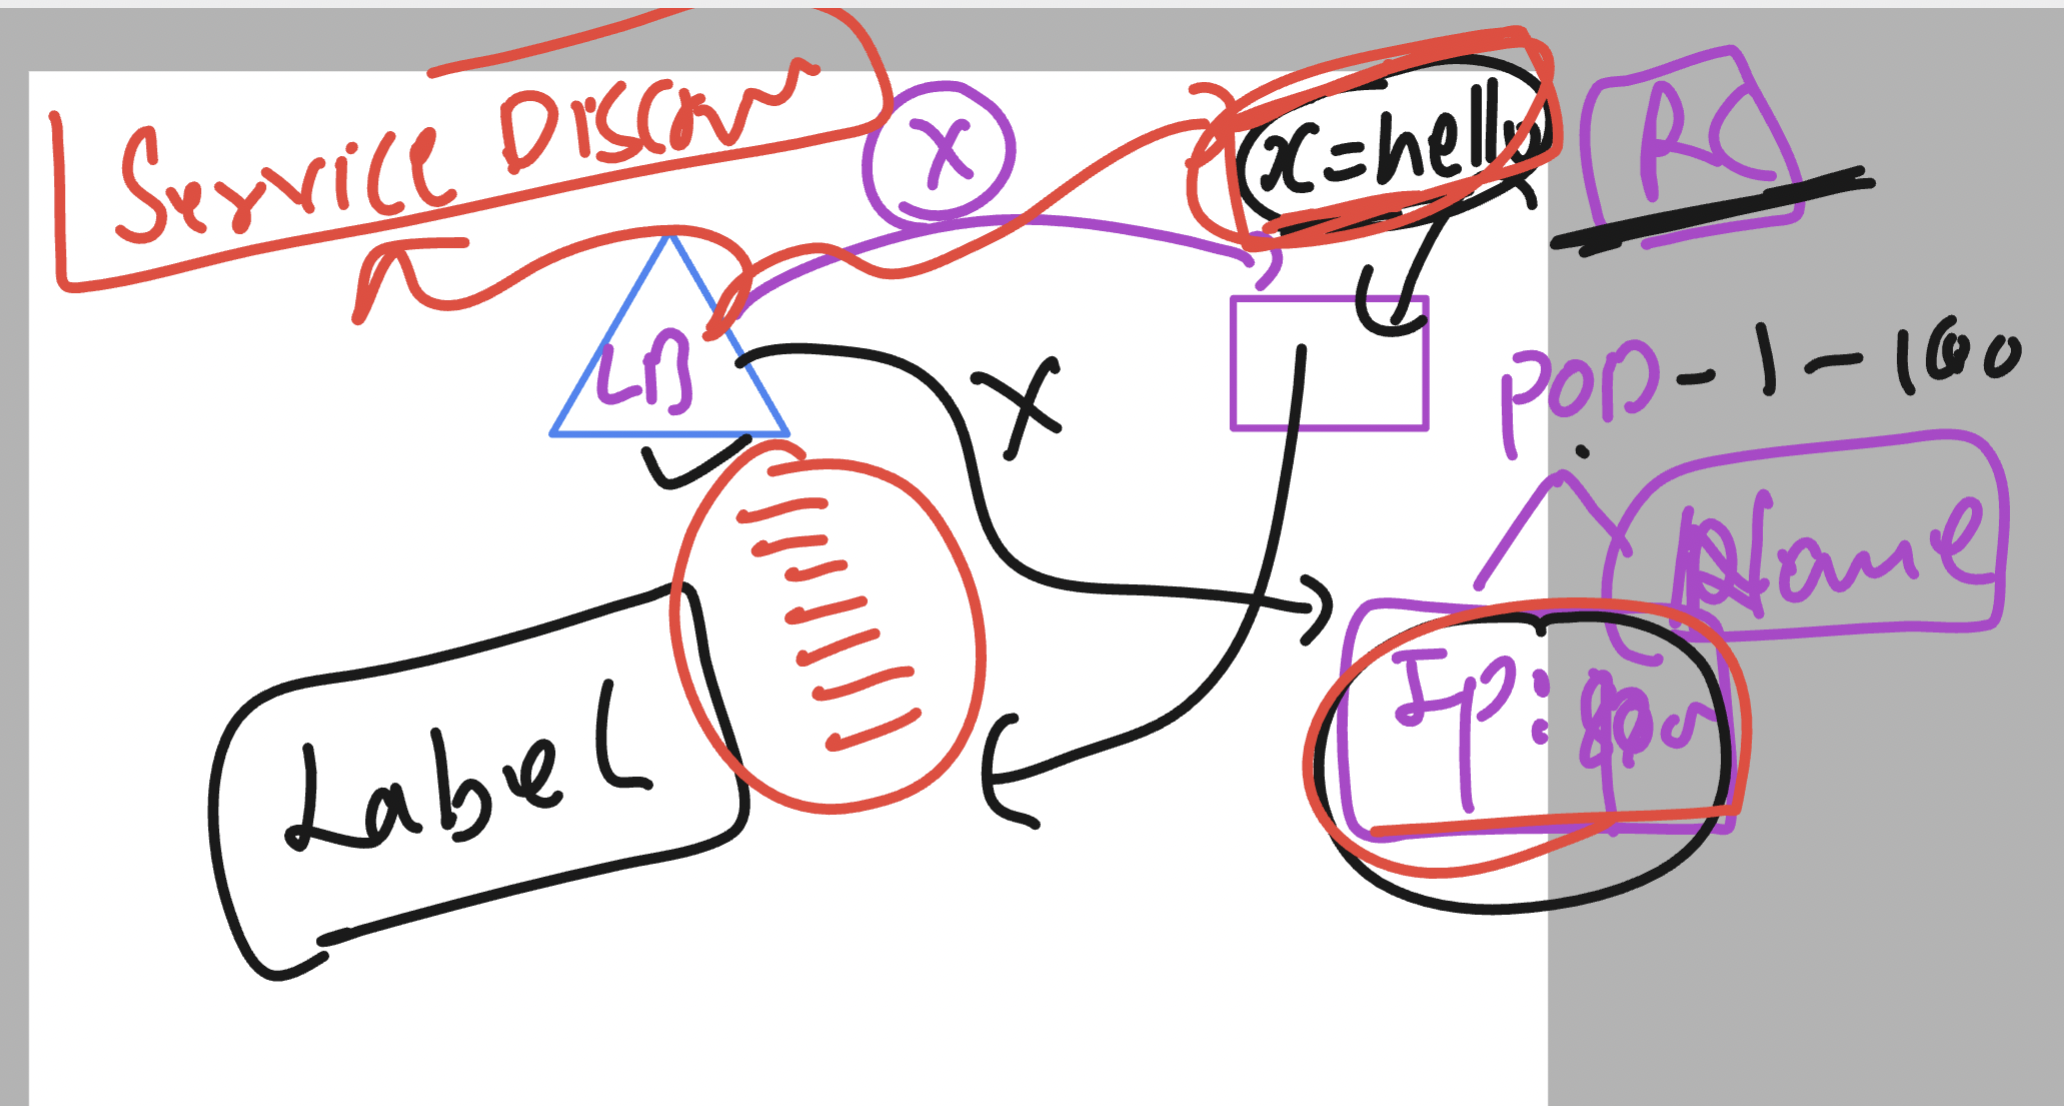 Service
X
x=hello
RC
LB
X
POD-1-100
Name
IP:
Label